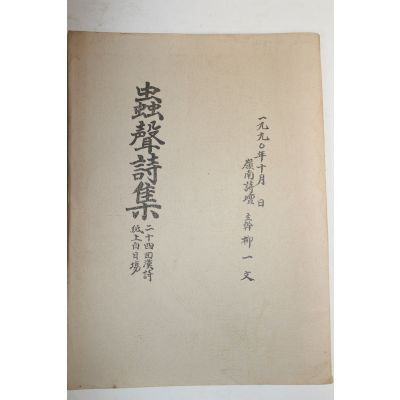 一九九〇年十月 日
嶺南詩壇 主幹 柳一文
蟲聲詩集
二十四回漢詩
紙上白日場